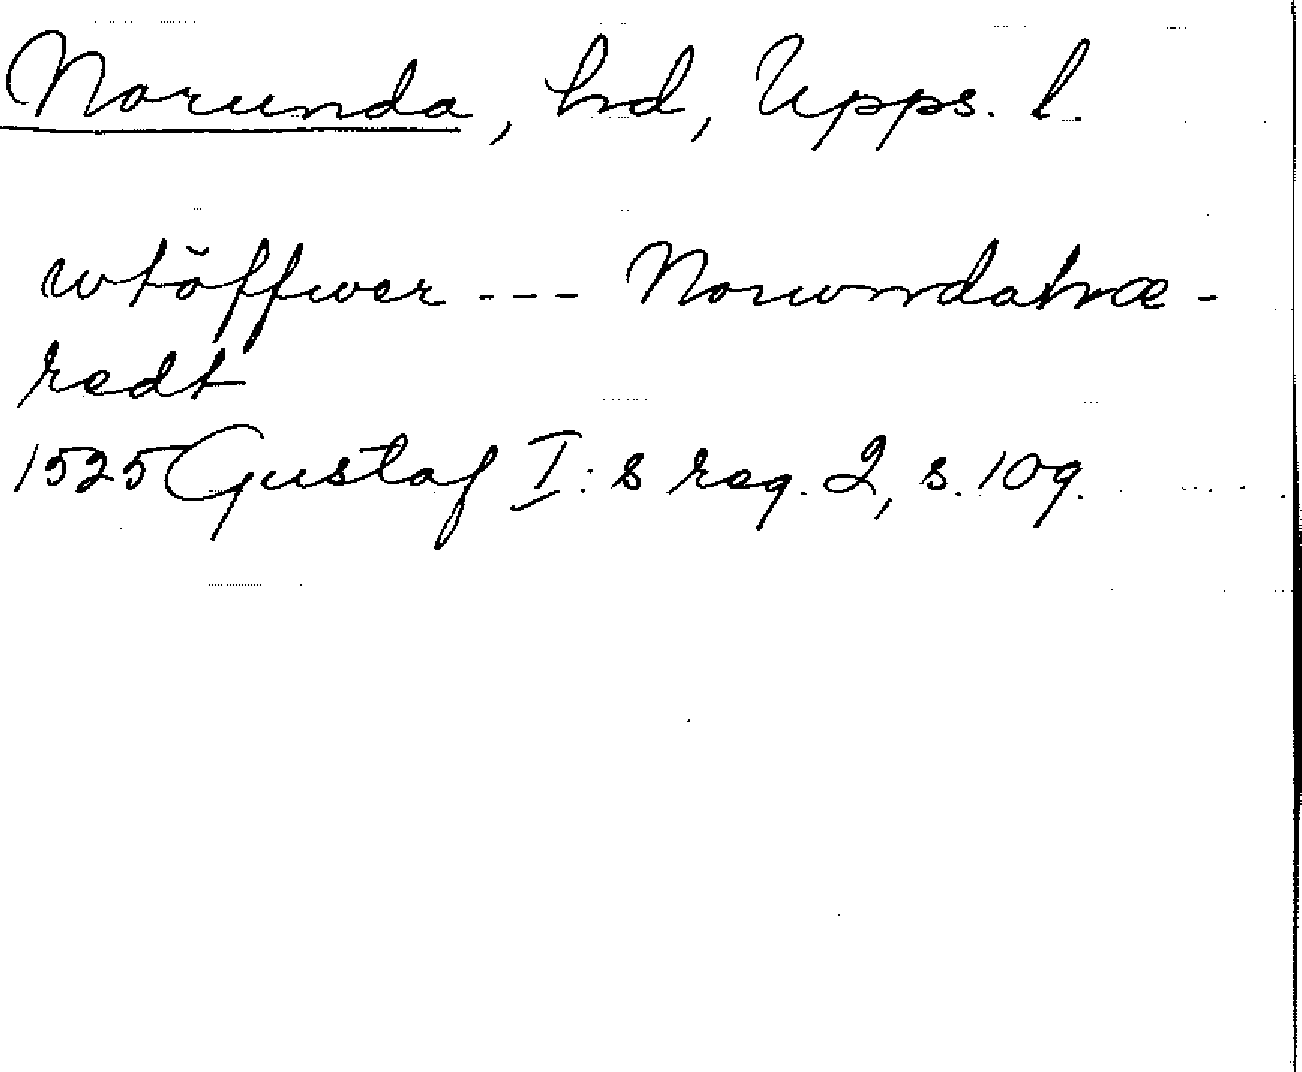 Norunda, hd, Upps. l.
wtöffwer --- Norwndahæ-
redt
1525 Gustaf I:s reg. 2, s. 109.